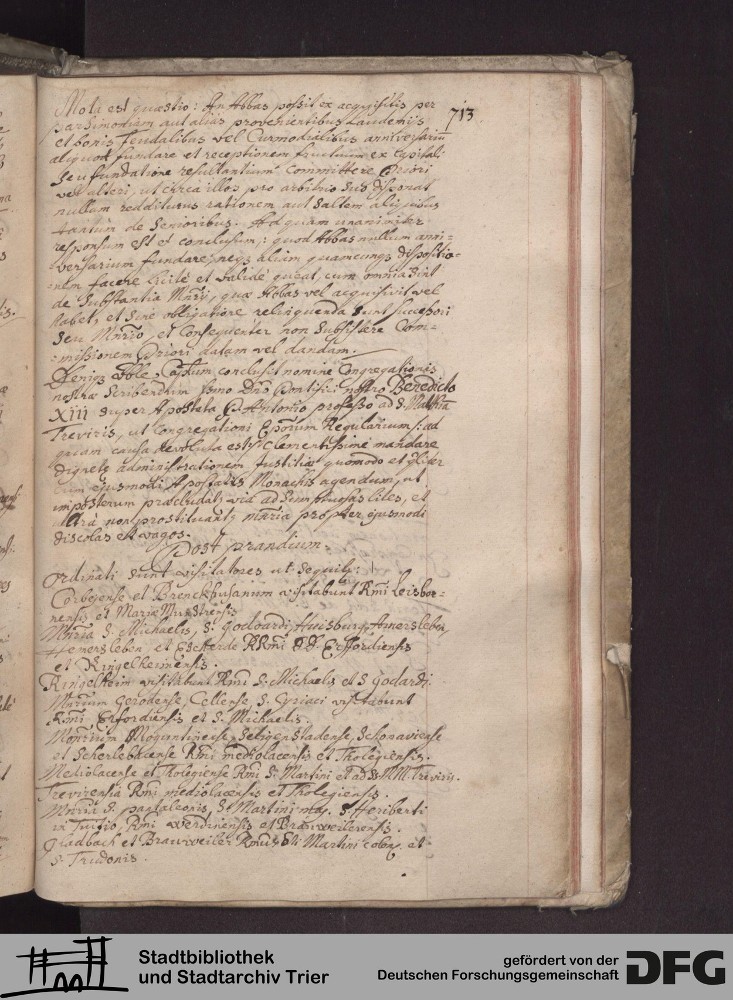 Mota est quaestio: An Abbas possit ex acquisitis per
713
parsimoniam aut aliis provenientibus Laudemijs
et bonis Feudalibus vel Curmodialibus anniversariũ
aliquod fundare et receptionem fructuum ex Capitali
seu fundatione resultantium committere Priori
vel alteri, ut circa illos pro arbitrio suo disponat
nullam redditurus rationem aut saltem aliquibus
tantum de Senioribus. Ad quam unanimiter
responsum est et conclusum: quod Abbas nullum anni=
=versarium fundare, neqȝ aliam quamcunqȝ dispositio=
=nem facere licitè et validè queat, cum omnia sint
de substantia Mnrÿ, quae Abbas vel acquisivit vel
habet, et sine obligatione relinquenda sunt successori
seu Mnrio, et consequenter non subsistere Com=
=missionem Priori datam vel dandam.
Deniqȝ conclusit nomine Congregationis
nostrae scribendum ssmo Dno Pontifici nostro Benedicto
XIII super Apostata P. Antonio professo ad S. Mathia
Treviris, ut Congregationi Eporum Regularium /: ad
quam causa devoluta est :/ Clementissime mandare
dignetȝ administrationem Justitiae quomodo et qliter
cum ejusmodi Apostatis Monachis agendum, ut
imposterum praecludatȝ via ad sumptuosas lites, et
ultra non prostituantȝ mnria propter ejusmodi
discolas et vagos.
Post prandium.
Ordinati sunt visitatores ut sequitȝ:
Corbejense et Brenckhusanum visitabunt Rmi Leisbor=
nensis et Mariae Münstrensis
Mnria S. Michaelis, S. Godoardi, Huisburg, Amersleben,
Hemersleben et Escherde RRmi DD. Erffordiensis
et Ringelheimensis.
Ringelheim visitabunt Rmi S. Michaelis et S Godardi.
Mnrium Gerodense, Cellense, S. Cyriaci visitabunt
Rmi Erfordiensis et S. Michaelis.
Monrium Moguntinense, Seligenstadense, Schonaviense
et Scherlebacense Rmi Mediolacensis et Tholegiensis.
Mediolacense et Tholegiense Rmi S. Martini et ad SS. MM. Treviris.
Trevirensia Rmi Mediolacensis et Tholegiensis.
Mnria S. Pantaleonis, S. Martini maj. S. Heriberti
in Tuitio, Rmi Werdinensis et Brauweilerensis.
Gladbach et Brauweiler Rmus S. Martini Colon. et
S. Trudonis.
Stadtbibliothek
und Stadtarchiv Trier
gefördert von der
Deutschen Forschungsgemeinschaft
DFG